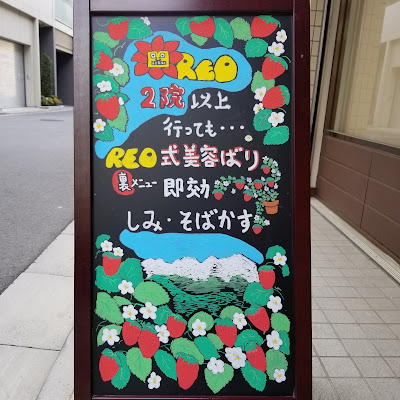 REO
2院以上
行っても・・・
REO式美容ばり
裏メニュー 即効
しみ・そばかす